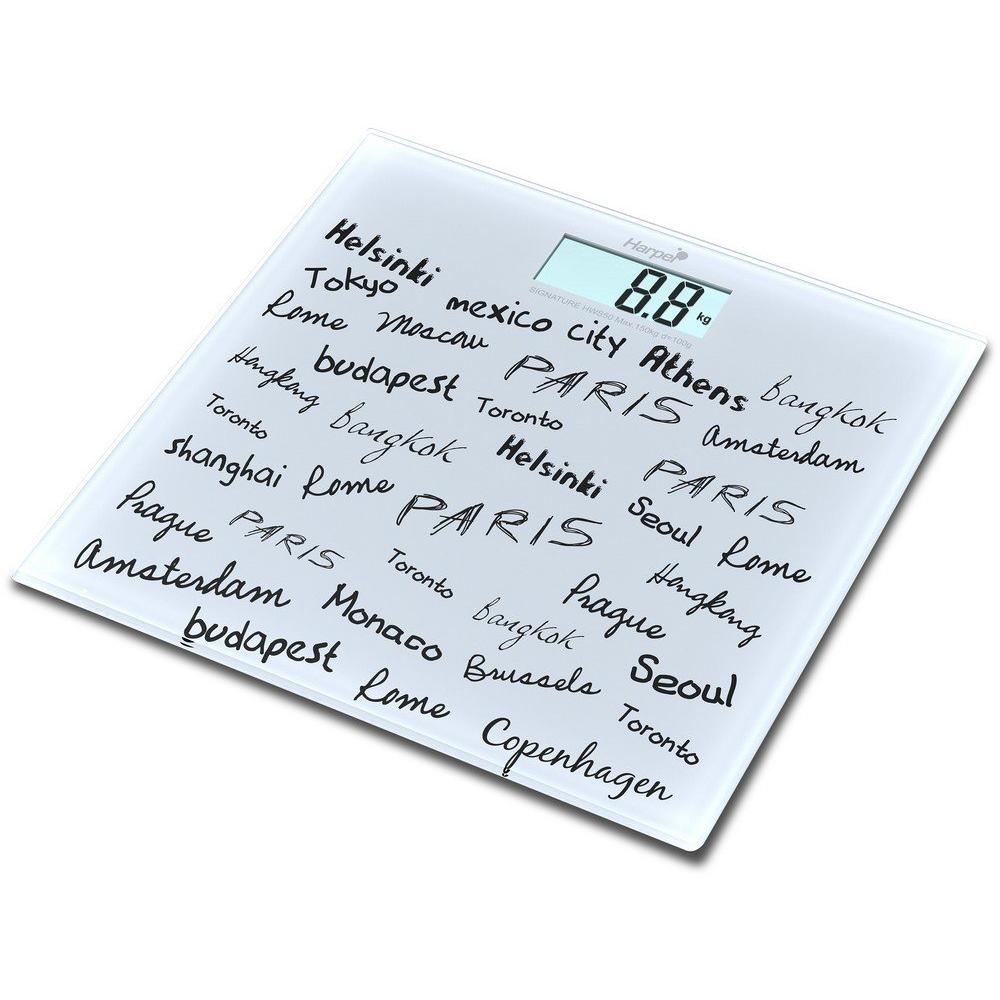 Harper
8.8 kg
SIGNATURE HWS50 Max 150kg d=100g
Helsinki
Tokyo mexico city Athens Bangkok
Rome Moscow PARIS Amsterdam
Hongkong budapest Toronto PARIS
Toronto Bangkok Helsinki Seoul Rome
shanghai Rome PARIS Hongkong
Prague PARIS Toronto Prague
Amsterdam Monaco Bangkok Seoul
budapest Brussels Toronto
Rome Copenhagen